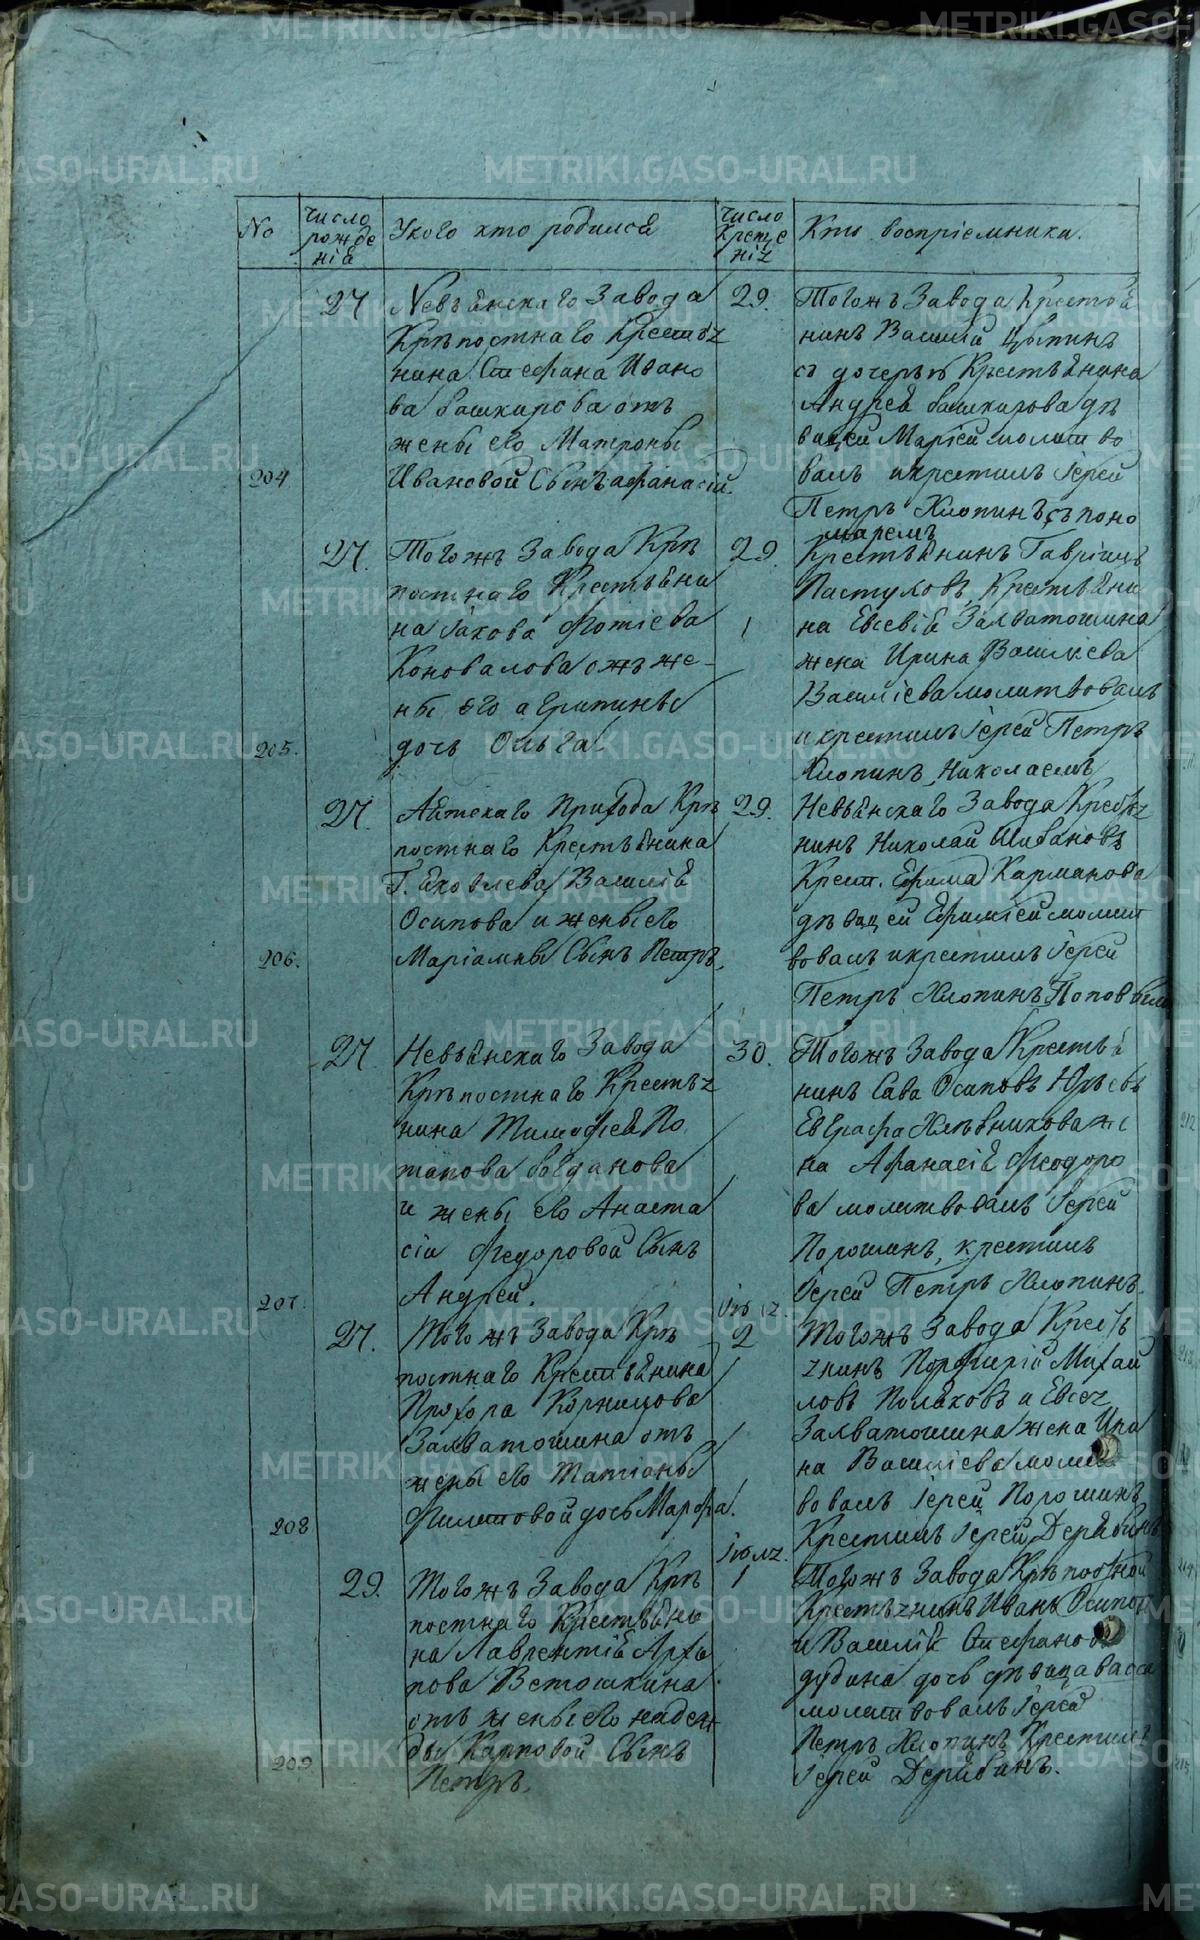 No
Число рождения
Укого кто родился
Число Крещения
Кто восприемники.
27
Невьянскаго Завода
Крѣпостнаго Крестья
нина Стефана Ивано
ва башкирова отъ
жены его Матроны
204
Ивановой Сынъ афанасій.
29.
Тогожъ Завода Крестья
нинъ Василій Цыпинъ
съ дочерью Крестьянина
Андрея башкирова дѣ
вицей Маріей молитво
валъ икрестилъ Іерей
Петръ Хлопинъ съ поно
маремъ
27.
Тогожъ Завода Крѣ
постнаго Крестьяни
на Іакова Фотіева
Коновалова отъ же-
ны его агрипины
205.
дочь Ольга.
29.
Крестьянинъ Гавріилъ
Пастуховъ Крестьяни
на Евсевія Залватошина
жена Ирина Василіева
Василіева молитвовалъ
икрестилъ Іерей Петръ
Хлопинъ Николаемъ
27.
Аятскаго Прихода Крѣ
постнаго Крестьянина
Г. Яковлева Василія
Осипова и жены его
206.
Маріамны Сынъ Петръ.
29.
Невьянскаго Завода Кресть
нинъ Николай Шибановъ
Крест. Ефима Карманова
дѣвицей Ефиміей молит
вовалъ икрестилъ Іерей
Петръ Хлопинъ Поповымъ
27.
Невьянскаго Завода
Крѣпостнаго Крестья
нина Тимофея По
тапова богданова
и жены его Анаста
сіи Федоровой Сынъ
207.
Андрей.
30.
Тогожъ Завода Крестья
нинъ Сава Осиповъ Юрьевъ
Евграфа Хлѣбникова же
на Афанасія Феодоро
ва молитвовалъ Іерей
Порошинъ, крестилъ
Іерей Петръ Хлопинъ.
27.
Тогожъ Завода Крѣ
постнаго Крестьянина
Прохора Корнилова
Залватошина отъ
жены его Татіаны
208
Филатовой дочь Марфа.
2
Тогожъ Завода Кресть
янинъ Порфирій Михаи
ловъ Поляковъ и Евсея
Залватошина жена Ири
на Василіева молит
вовалъ Іерей Порошинъ
Крестилъ Іерей Дерябинъ
29.
Тогожъ Завода Крѣ
постнаго Крестьяни
на Лаврентія Архи
пова Ветошкина
отъ жены его надеж
209
ды Карповой Сынъ
Петръ.
Іюля.
1
Тогожъ Завода Крѣпостной
Крестьянинъ Иванъ Осипов
и Василія Стефанова
дудина дочь дѣвица васса
молитвовалъ Іерей
Петръ Хлопинъ Крестилъ
Іерей Дерябинъ.
METRIKI.GASO-URAL.RU